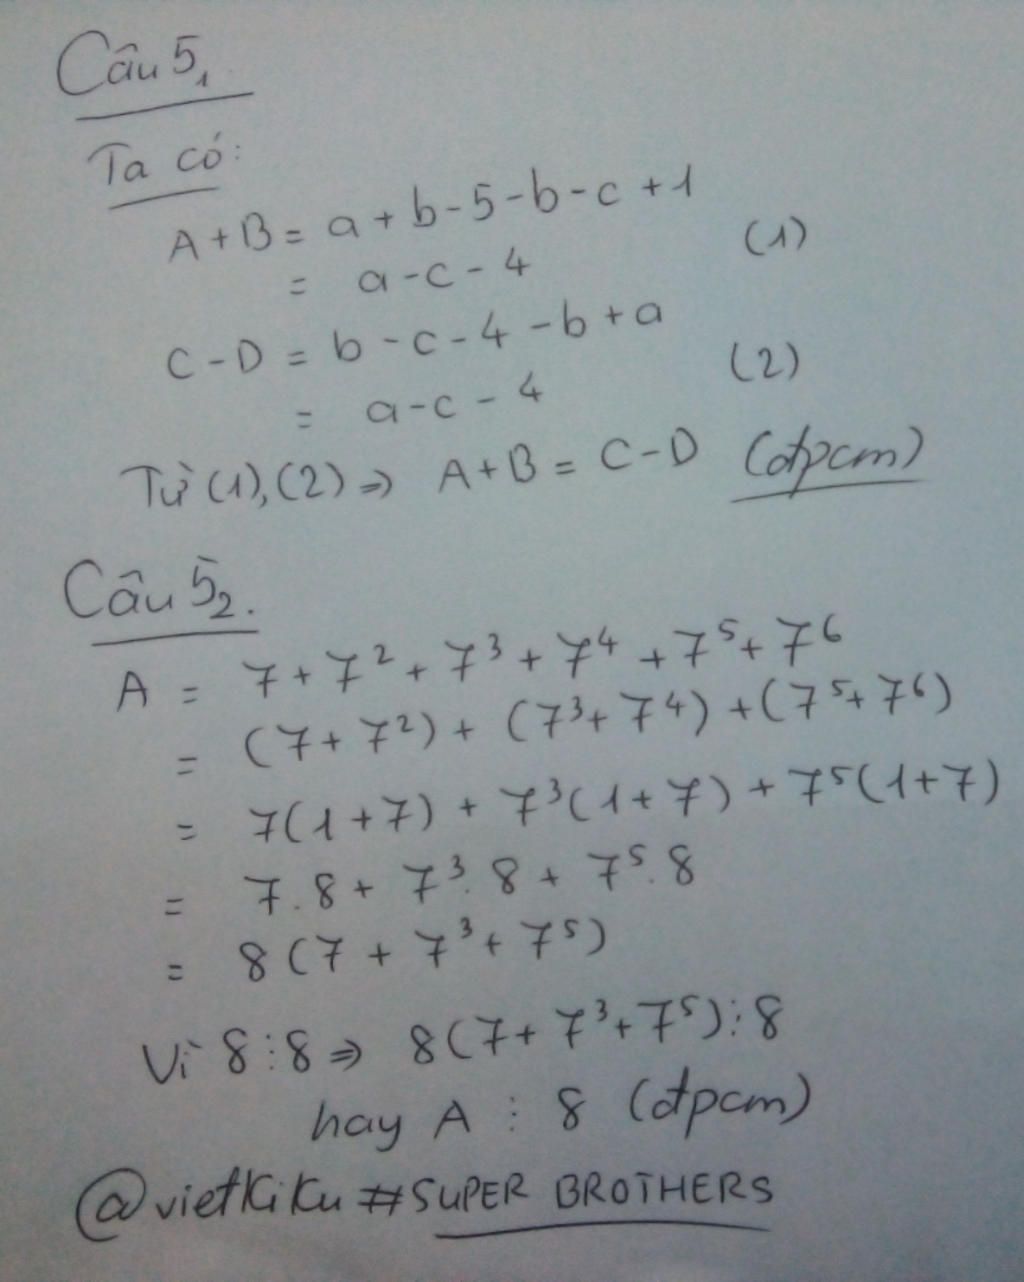 Câu 5₁
Ta có:
A + B = a + b - 5 - b - c + 1
= a - c - 4 (1)
C - D = b - c - 4 - b + a
= a - c - 4 (2)
Từ (1), (2) ⇒ A + B = C - D (đpcm)
Câu 5₂.
A = 7 + 7² + 7³ + 7⁴ + 7⁵ + 7⁶
= (7 + 7²) + (7³ + 7⁴) + (7⁵ + 7⁶)
= 7(1 + 7) + 7³(1 + 7) + 7⁵(1 + 7)
= 7.8 + 7³.8 + 7⁵.8
= 8(7 + 7³ + 7⁵)
Vì 8 ⋮ 8 ⇒ 8(7 + 7³ + 7⁵) ⋮ 8
hay A ⋮ 8 (đpcm)
@vietKiKu #SUPER BROTHERS